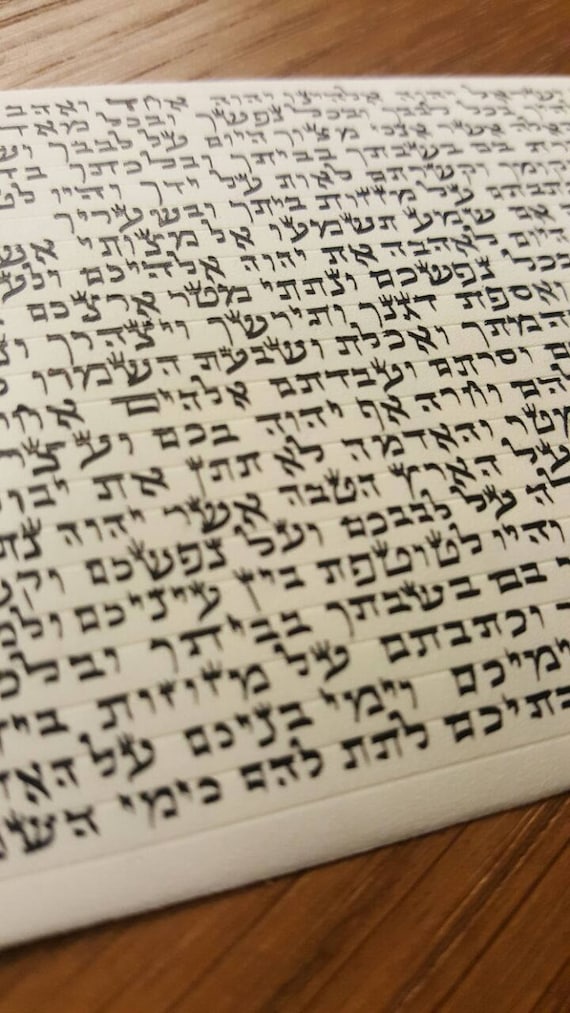 ישראל יהוה אלהינו יהוה אחד ואהב
לבבך ובכל נפשך ובכל מאד
האלה אשר אנכי מצוך היום על לבבך וש
בם בשבתך בביתך ובלכתך בד
וקשרתם לאות על ידך והיו לט
על מזזות ביתך ובשעריך
אם שמע תשמעו אל מצותי אש
היום לאהבה את יהוה אלהיכם ולע
ובכל נפשכם ונתתי מטר ארצכם
ואספת דגנך ותירשך ויצהרך ונ
ואכלת ושבעת השמרו
וסרתם ועבדתם אלהים אחרי
להם וחרה אף יהוה בכם ועצר
מטר והאדמה לא תתן את יבו
מעל הארץ הטבה אשר יהוה נת
על לבבכם ועל נפשכם וקש
והיו לטוטפת בין עיניכם ולמ
בם בשבתך בביתך ובלכ
וכתבתם על מזוזות בית
ימיכם וימי בניכם על האד
בתיכם לתת להם כימי השמ